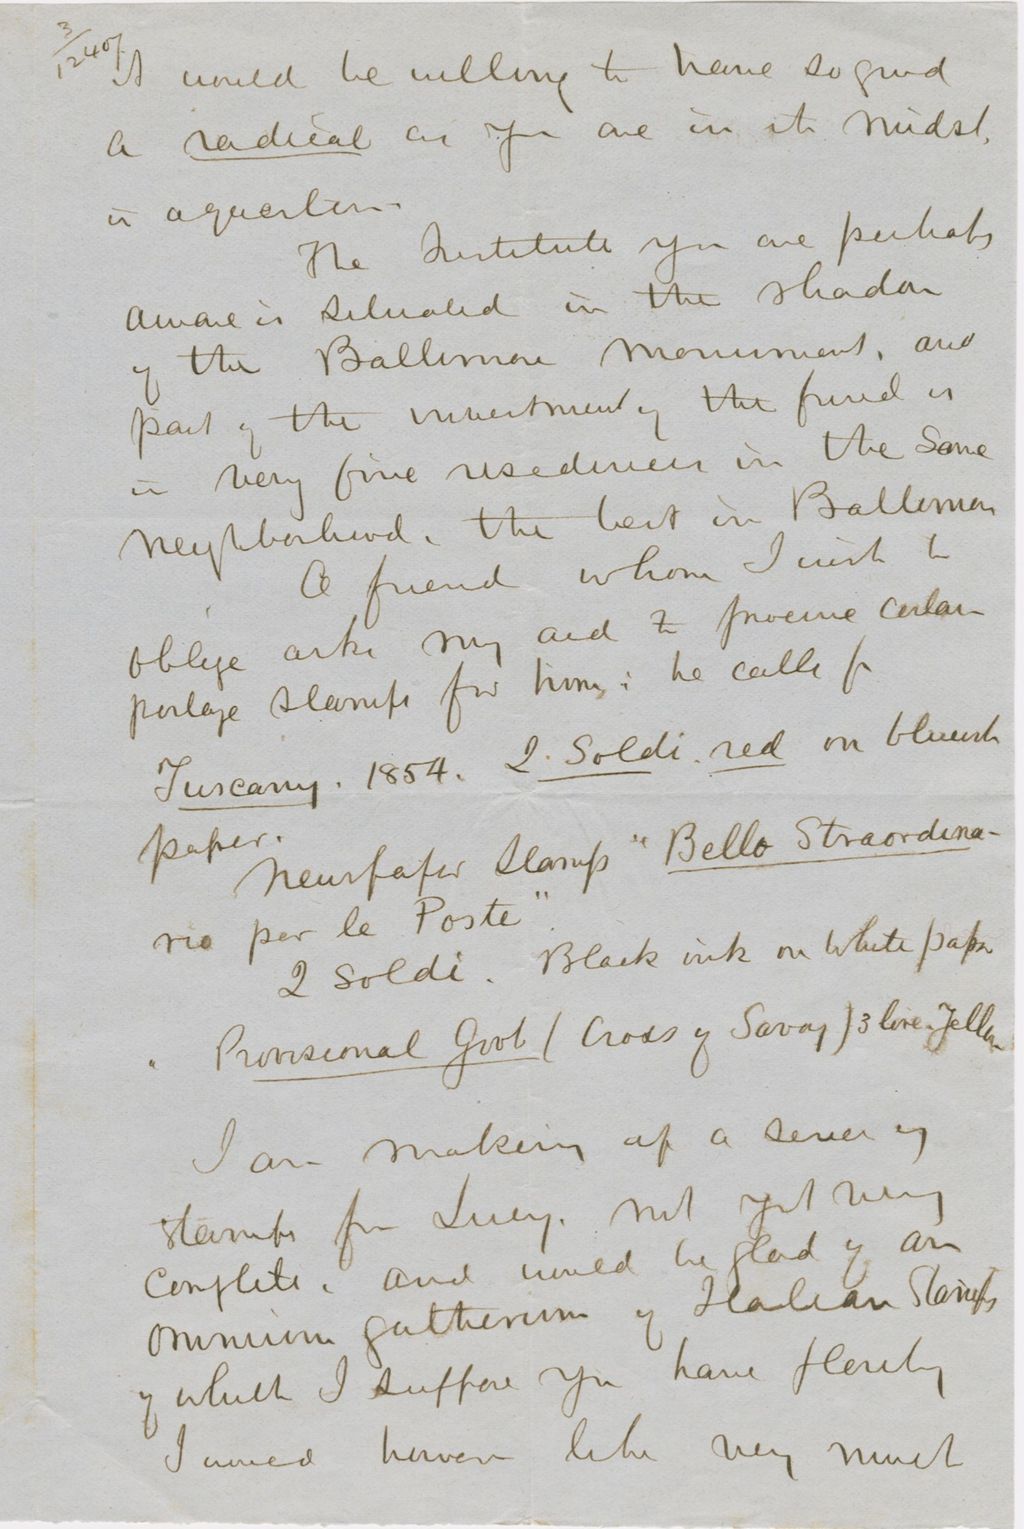 3/12407
it would be willing to have so good
a radical as you are in its midst,
is a question.
The Institute you are perhaps
aware is situated in the shadow
of the Baltimore monument, and
part of the investment of the fund is
in very fine residences in the same
neighborhood, the best in Baltimore
A friend whom I wish to
oblige asks my aid to procure certain
postage stamps for him; he calls for
Tuscany. 1854. 2. Soldi. red on blueish
paper.
Newspaper stamps "Bello Straordina-
rio per le Poste".
2 Soldi. Black ink on white paper
" Provisional Govt (Cross of Savoy) 3 lire. Yellow
I am making up a series of
stamps for Lucy, not yet very
complete, and would be glad of an
omnium gatherum of Italian Stamps
of which I suppose you have plenty
I would however like very much